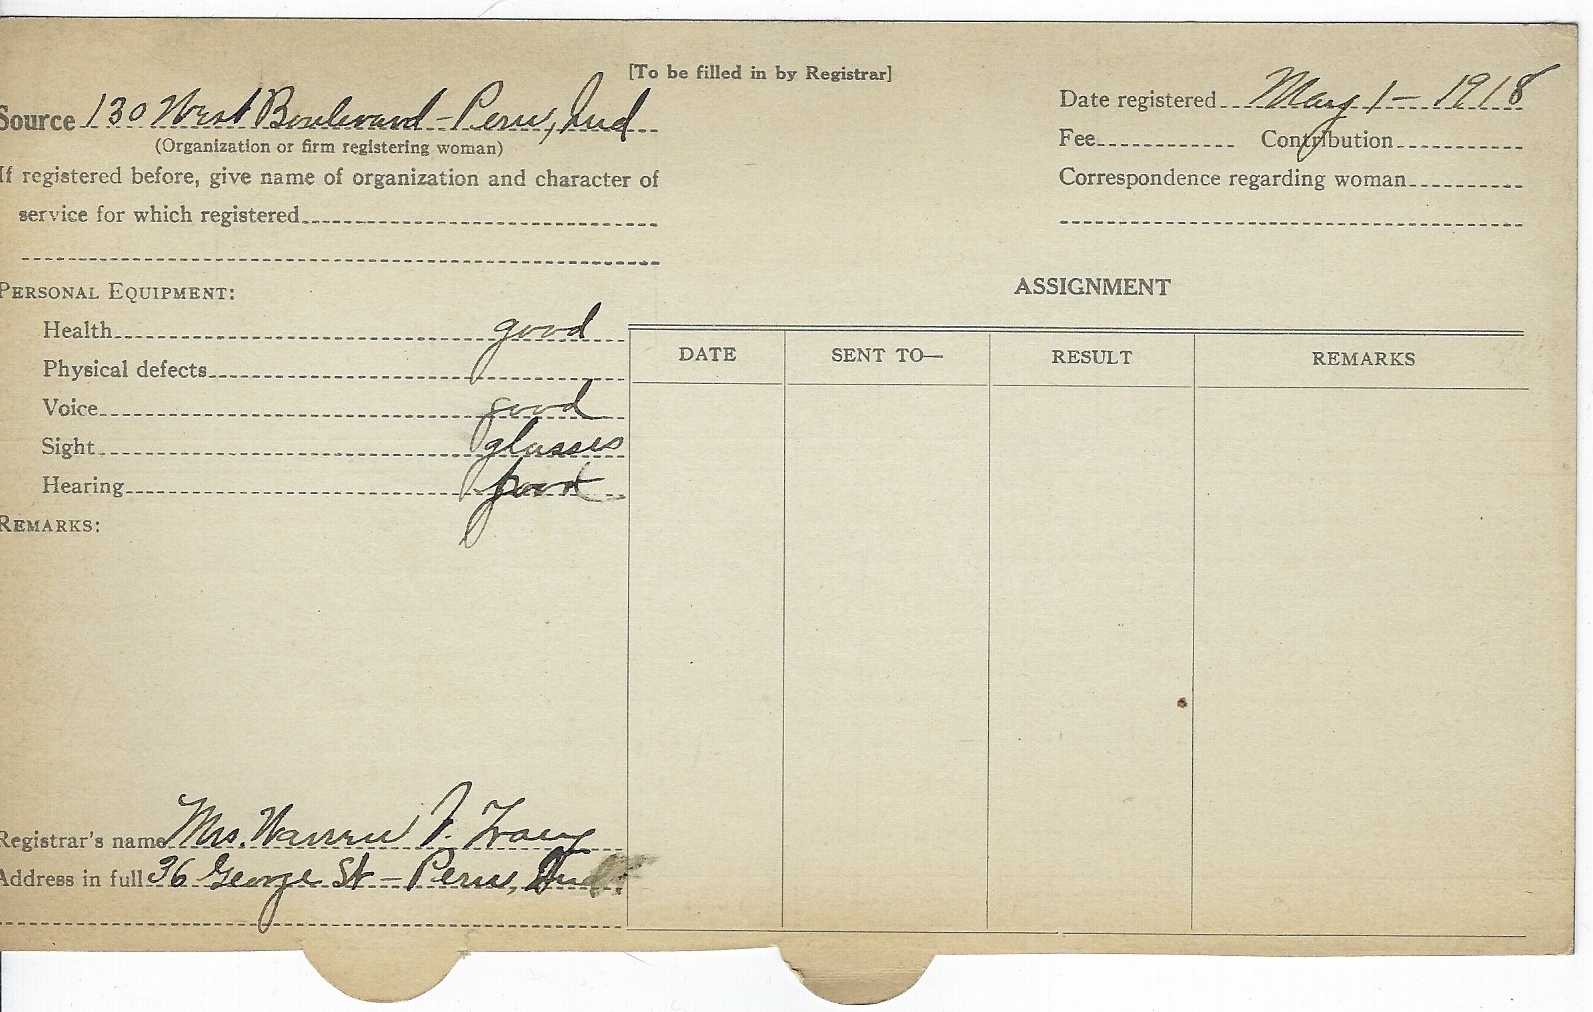 [To be filled in by Registrar]
Source 130 West Boulevard - Peru, Ind
(Organization or firm registering woman)
If registered before, give name of organization and character of
service for which registered
Date registered May 1 - 1918
Fee Contribution
Correspondence regarding woman
PERSONAL EQUIPMENT:
Health good
Physical defects
Voice good
Sight glasses
Hearing good
REMARKS:
Registrar's name Mrs. Warren
Address in full 36 George St - Peru, Ind
ASSIGNMENT
DATE SENT TO— RESULT REMARKS